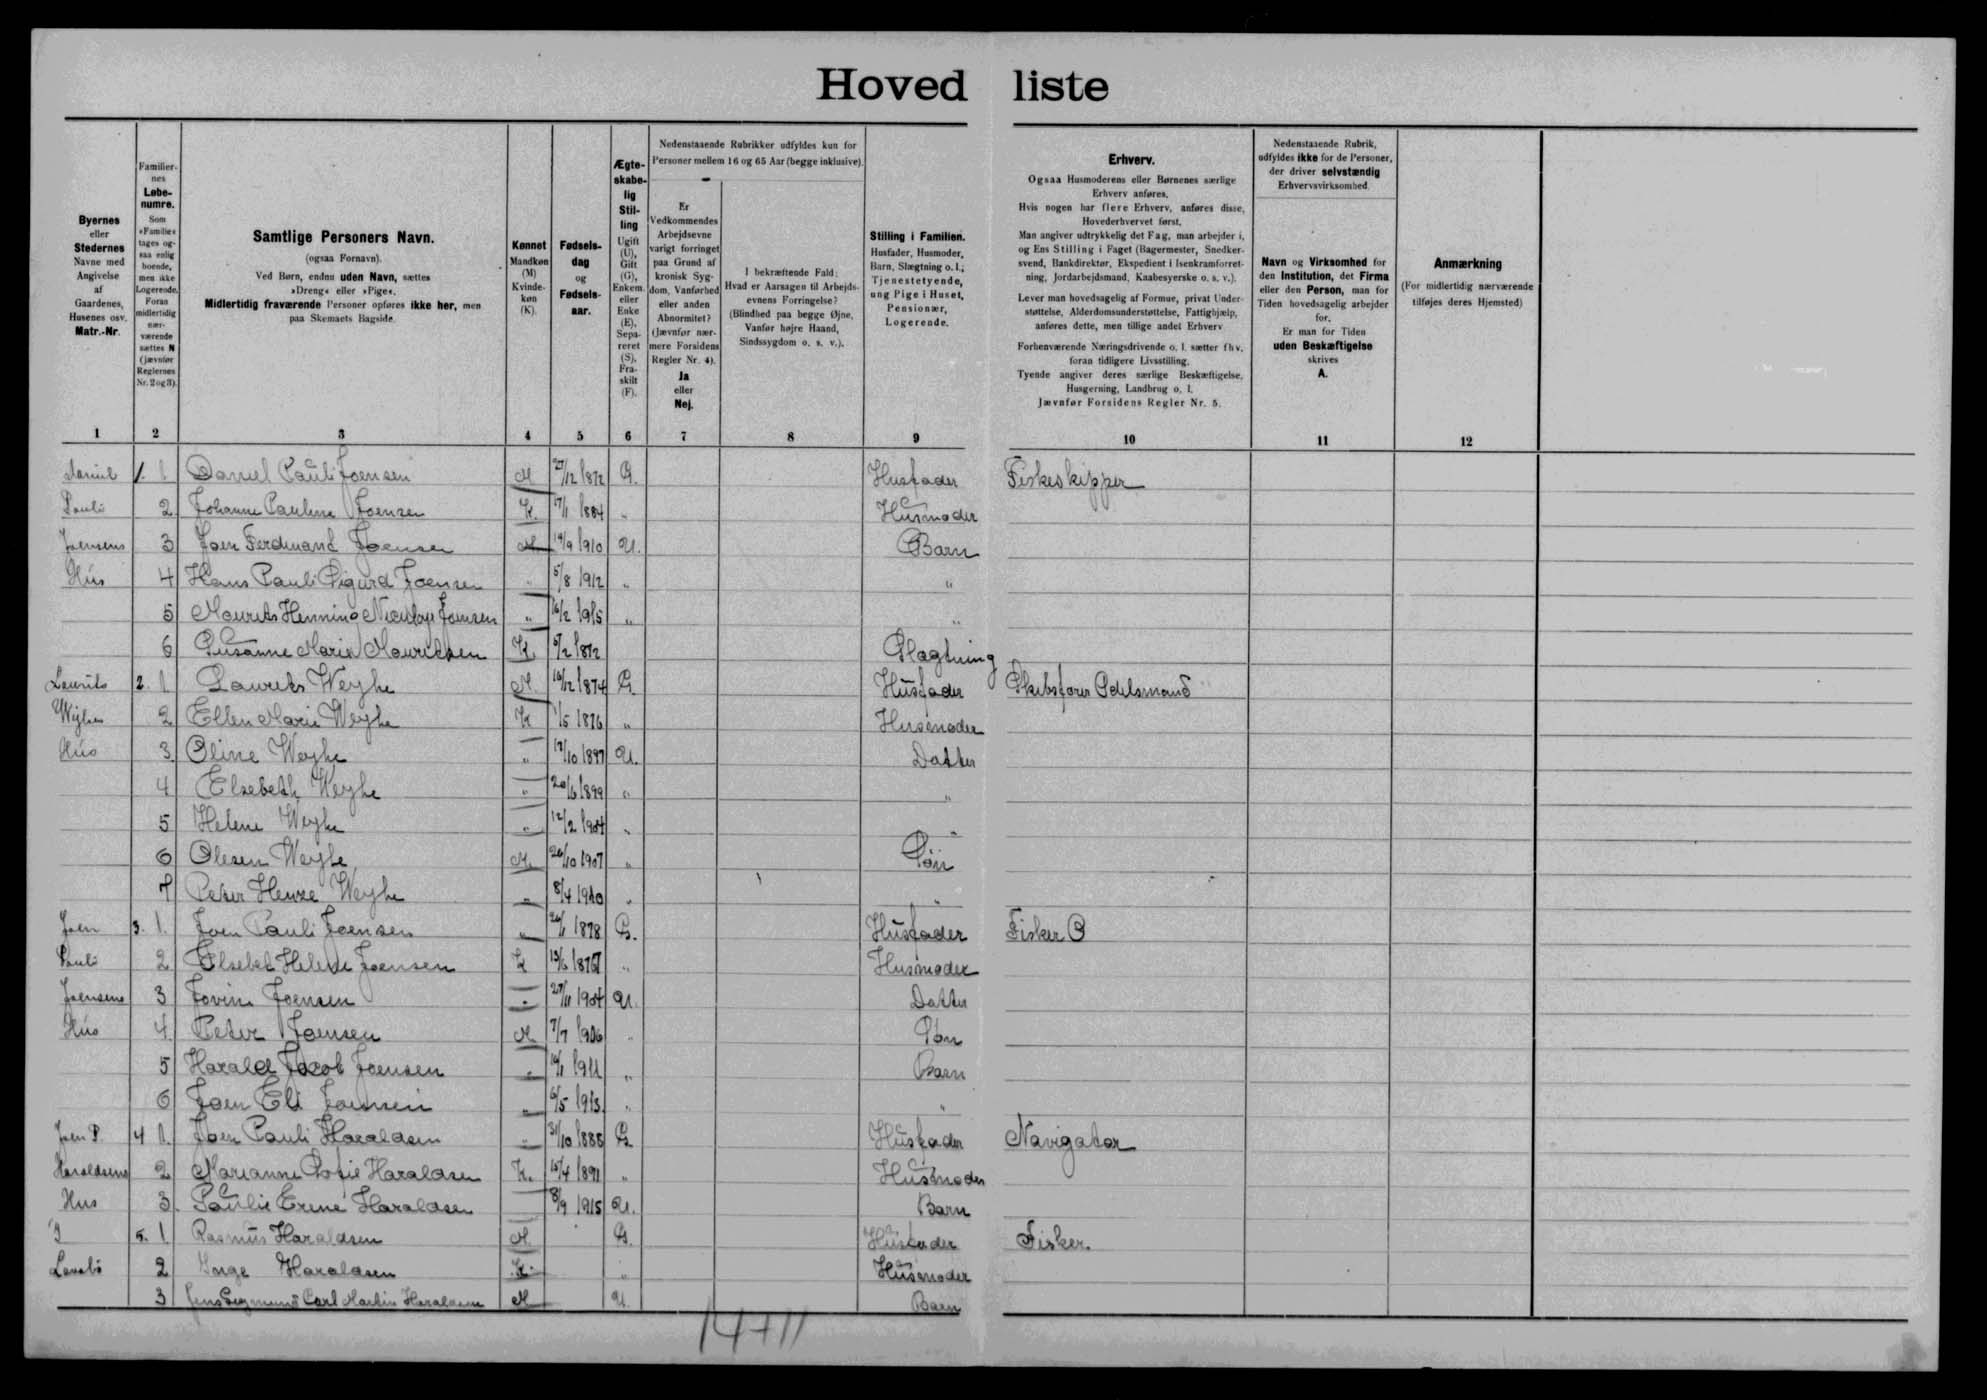 Hoved liste
Byernes
eller
Stedernes
Navne med
Angivelse
af
Gaardenes,
Husenes osv.
Matr.-Nr.
Familier-
nes
Løbe-
numre.
Som
»Familie«
tages og-
saa enlig
boende,
men ikke
Logerende.
Foran
midlertidig
nær-
værende
sættes N
(jævnfør
Reglernes
Nr. 2 og 3).
Samtlige Personers Navn.
(ogsaa Fornavn).
Ved Børn, endnu uden Navn, sættes
»Dreng« eller »Pige«.
Midlertidig fraværende Personer opføres ikke her, men
paa Skemaets Bagside.
Kønnet
Mandkøn
(M)
Kvinde-
køn
(K).
Fødsels-
dag
og
Fødsels-
aar.
Ægte-
skabe-
lig
Stil-
ling
Ugift
(U),
Gift
(G),
Enkem.
eller
Enke
(E),
Sepa-
reret
(S),
Fra-
skilt
(F).
Nedenstaaende Rubrikker udfyldes kun for
Personer mellem 16 og 65 Aar (begge inklusive).
Er
Vedkommendes
Arbejdsevne
varigt forringet
paa Grund af
kronisk Syg-
dom, Vanførhed
eller anden
Abnormitet?
(Jævnfør nær-
mere Forsidens
Regler Nr. 4).
Ja
eller
Nej.
I bekræftende Fald:
Hvad er Aarsagen til Arbejds-
evnens Forringelse?
(Blindhed paa begge Øjne,
Vanfør højre Haand,
Sindssygdom o. s. v.).
Stilling i Familien.
Husfader, Husmoder,
Barn, Slægtning o. l.;
Tjenestetyende,
ung Pige i Huset,
Pensionær,
Logerende.
Erhverv.
Ogsaa Husmoderens eller Børnenes særlige
Erhverv anføres.
Hvis nogen har flere Erhverv, anføres disse,
Hovederhvervet først.
Man angiver udtrykkelig det Fag, man arbejder i,
og Ens Stilling i Faget (Bagermester, Snedker-
svend, Bankdirektør, Ekspedient i Isenkramforret-
ning, Jordarbejdsmand, Kaabesyerske o. s. v.).
Lever man hovedsagelig af Formue, privat Under-
støttelse, Alderdomsunderstøttelse, Fattighjælp,
anføres dette, men tillige andet Erhverv
Forhenværende Næringsdrivende o. l. sætter fhv.
foran tidligere Livsstilling.
Tyende angiver deres særlige Beskæftigelse,
Husgerning, Landbrug o. l.
Jævnfør Forsidens Regler Nr. 5.
Nedenstaaende Rubrik,
udfyldes ikke for de Personer,
der driver selvstændig
Erhvervsvirksomhed.
Navn og Virksomhed for
den Institution, det Firma
eller den Person, man for
Tiden hovedsagelig arbejder
for.
Er man for Tiden
uden Beskæftigelse
skrives
A.
Anmærkning
(For midlertidig nærværende
tilføjes deres Hjemsted)
1 2 3 4 5 6 7 8 9 10 11 12
Daniel 1. 1 Daniel Pauli Joensen M 27/12 1872 G. Husfader Fiskeskipper
Pauli 2 Johanne Pauline Joensen K. 17/1 1884 " Husmoder
Joensens 3 Joen Ferdinand Joensen M 19/9 1910 U. Barn
Hús 4 Hans Pauli Sigurd Joensen " 5/8 1912 " "
5 Mourits Henning Nicolaj Joensen " 16/2 1915 " "
6 Susanne Maria Mouritsen K. 6/2 1872 Slægtning
Laurits 2. 1 Laurits Weyhe M. 16/12 1874 G. Husfader Skibsfører Odelsmand
Weyhes 2 Ellen Marie Weyhe K 1/5 1876 " Husmoder
Hús 3. Oline Weyhe " 12/10 1897 U. Datter
4 Elsebeth Weyhe " 20/6 1899 " "
5 Helene Weyhe " 12/2 1904 " "
6 Olesen Weyhe M. 26/10 1907 " Søn
7 Peter Henze Weyhe " 8/4 1910 " "
Joen 3. 1. Joen Pauli Joensen " 26/1 1878 G. Husfader Fisker O
Pauli 2 Elsebet Helene Joensen K 13/6 " Husmoder
Joensens 3 Jovine Joensen " 27/11 1904 U. Datter
Hús 4 Peter Joensen M 7/7 1906 " Søn
5 Harald Jacob Joensen " 1911 " Barn
6 Joen Eli Joensen " 6/5 1913. " "
Joen P. 4 1. Joen Pauli Haraldsen " 31/10 1888 G Husfader Navigatør
Haraldsens 2 Marianne Sofie Haraldsen K. 15/4 1891 " Husmoder
Hus 3. Paulie Erene Haraldsen 8/9 1915 U. Barn
I 5. 1. Rasmus Haraldsen M G. Husfader Fisker.
2 Inge Haraldsen K. " Husmoder
3 Jens Sigmund Carl Martin Haraldsen M U. Barn
14+11